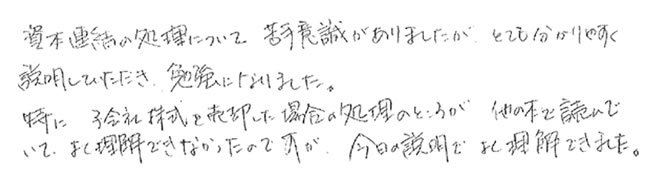 資本連結の処理について 苦手意識がありましたが、とても分かりやすく
説明していただき、勉強になりました。
特に 子会社株式を売却した場合の処理のところが 他の本で読んで
いて よく理解できなかったのですが、今日の説明で よく理解できました。